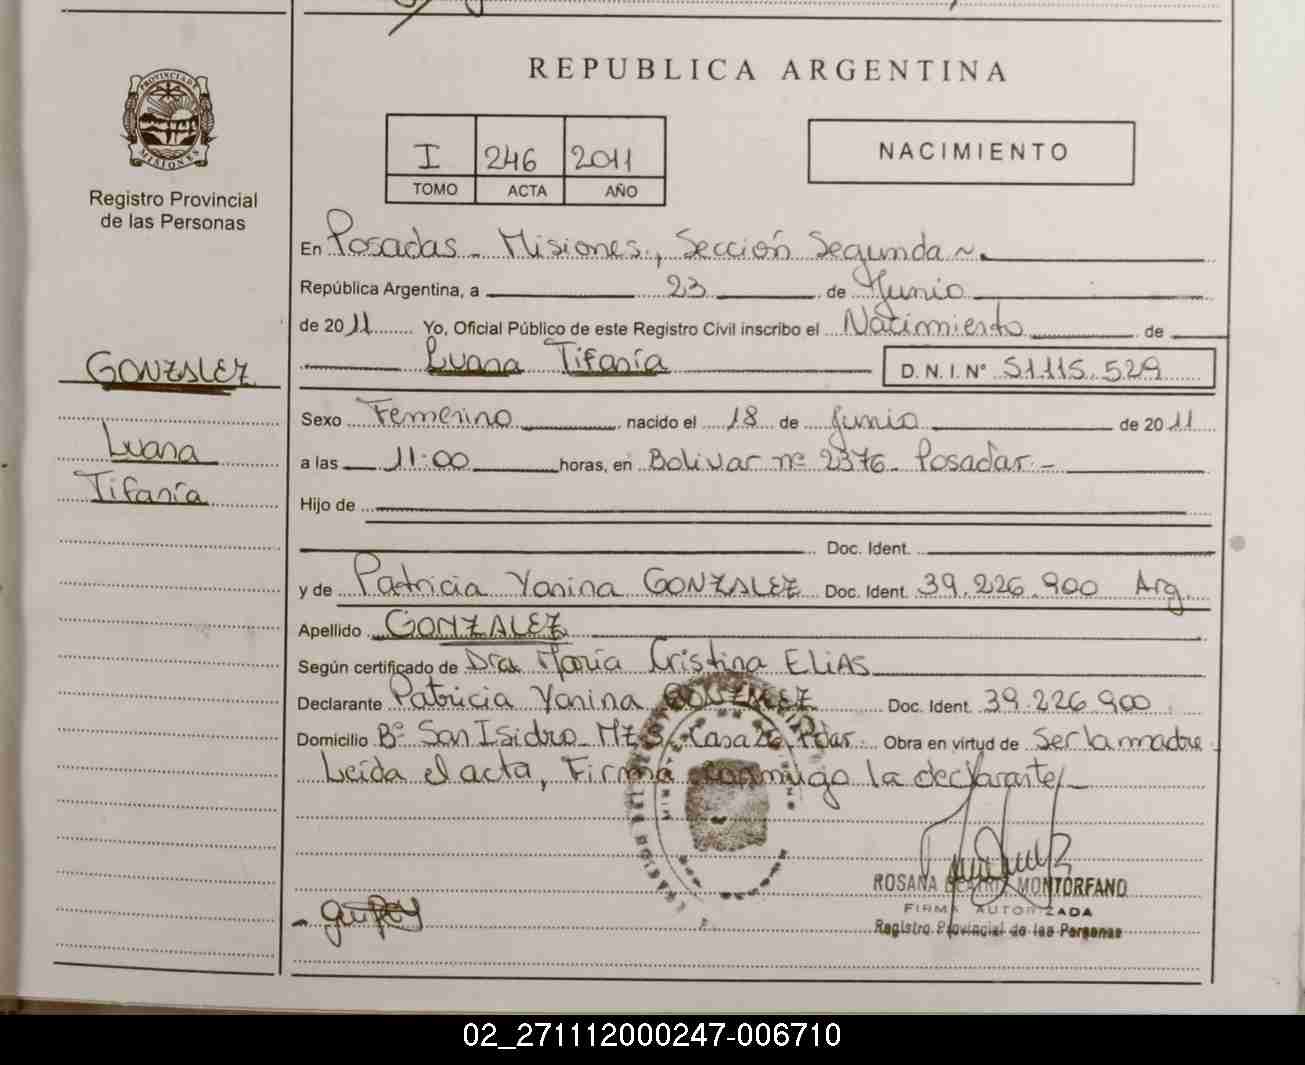 REPUBLICA ARGENTINA
PROVINCIA DE MISIONES
Registro Provincial
de las Personas
I 246 2011
TOMO ACTA AÑO
NACIMIENTO
En Posadas - Misiones, Sección Segunda ~.
República Argentina, a 23 de Junio
de 2011 Yo, Oficial Público de este Registro Civil inscribo el Nacimiento de
Luana Tifanía D. N. I. N° 51.115.529
GONZALEZ
Luana
Tifanía
Sexo Femenino nacido el 18 de Junio de 2011
a las 11:00 horas, en Bolivar nº 2376 - Posadas -
Hijo de
Doc. Ident.
y de Patricia Yanina GONZALEZ Doc. Ident. 39.226.900 Arg.
Apellido GONZALEZ
Según certificado de Dra. María Cristina ELIAS
Declarante Patricia Yanina GONZALEZ Doc. Ident. 39.226.900
Domicilio Bº San Isidro Mz Casa Pdas. Obra en virtud de Ser la madre
Leída el acta, Firma conmigo la declarante
ROSANA BEATRIZ MONTORFANO
FIRMA AUTORIZADA
Registro Provincial de las Personas
02_271112000247-006710